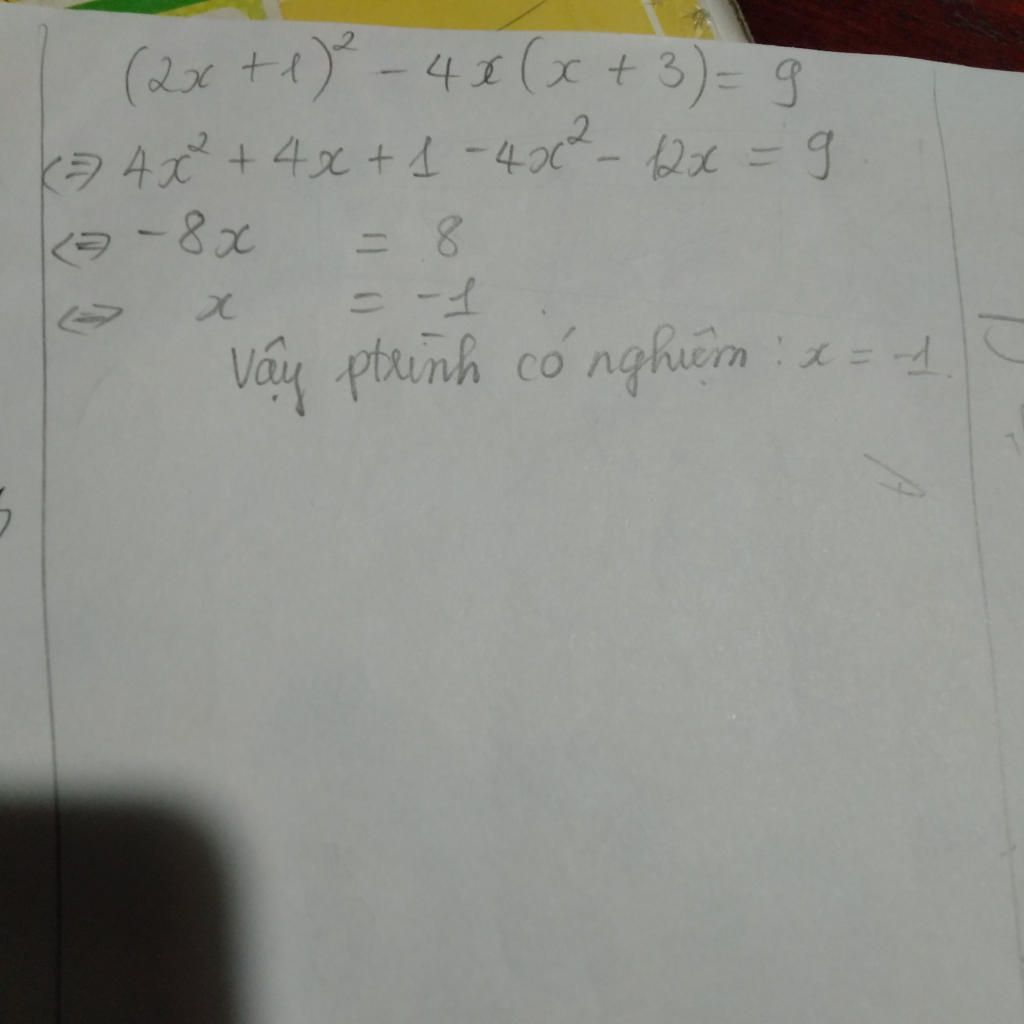 (2x + 1)² - 4x(x + 3) = 9
<=> 4x² + 4x + 1 - 4x² - 12x = 9
<=> -8x = 8
<=> x = -1
Vậy ptrình có nghiệm : x = -1.